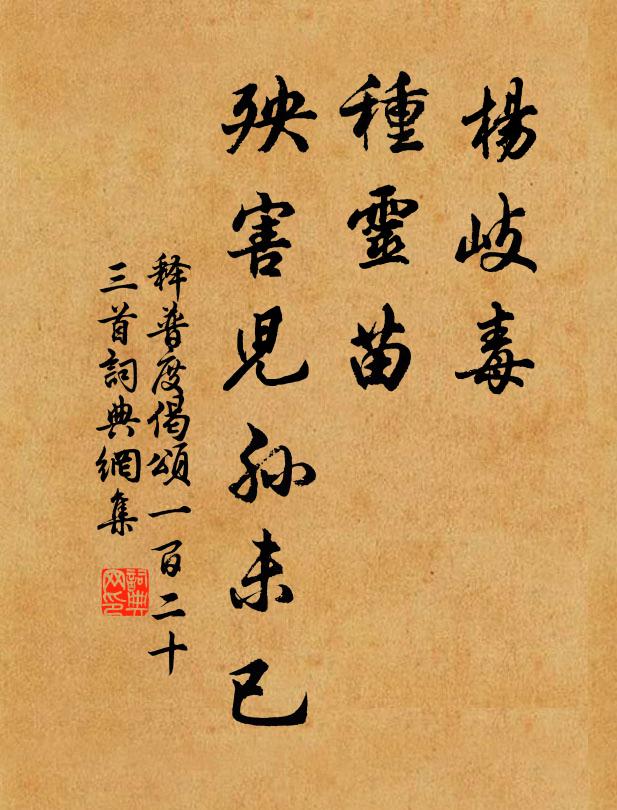 楊岐毒
種靈苗
殃害児孫未已
释普度偈頌一百二十
三首詞典網集
詞典
网印